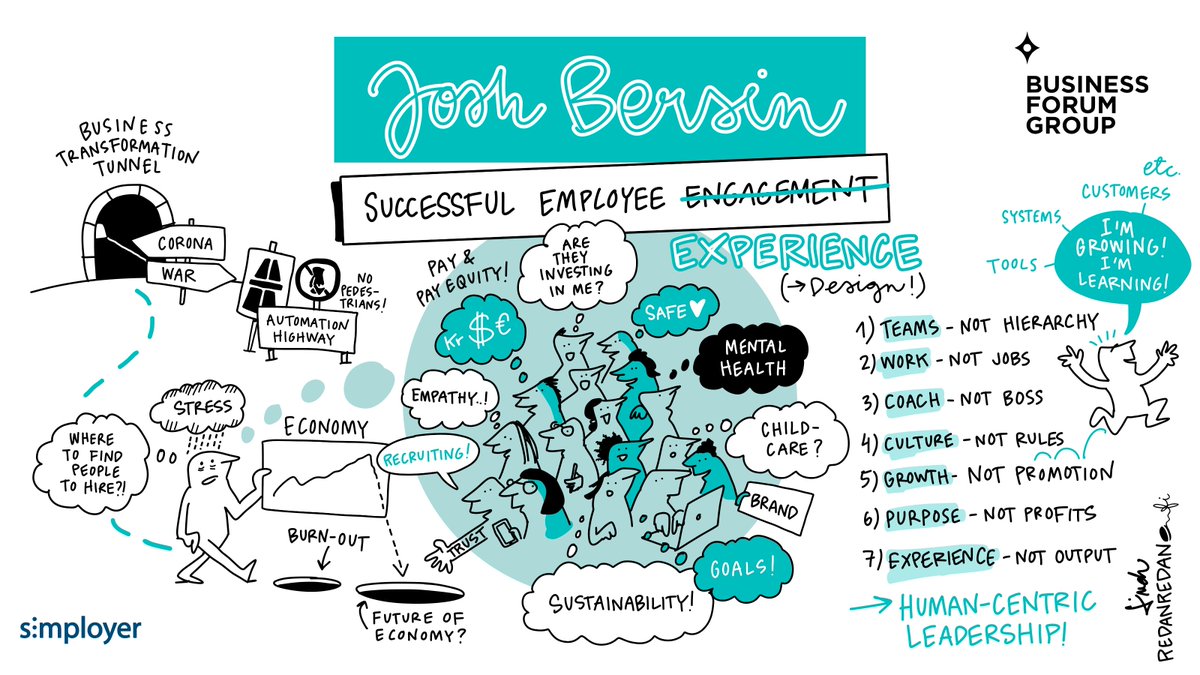 Josh Bersin
BUSINESS
FORUM
GROUP
SUCCESSFUL EMPLOYEE ENGAGEMENT
EXPERIENCE
(→Design!)
BUSINESS
TRANSFORMATION
TUNNEL
CORONA
WAR
NO
PEDES-
TRIANS!
AUTOMATION
HIGHWAY
STRESS
WHERE
TO FIND
PEOPLE
TO HIRE?!
ECONOMY
BURN-OUT
FUTURE OF
ECONOMY?
RECRUITING!
TRUST
PAY &
PAY EQUITY!
Kr $ €
EMPATHY..!
ARE
THEY
INVESTING
IN ME?
SAFE
MENTAL
HEALTH
CHILD-
CARE?
BRAND
GOALS!
SUSTAINABILITY!
etc.
CUSTOMERS
SYSTEMS
TOOLS
I'M
GROWING!
I'M
LEARNING!
1) TEAMS - NOT HIERARCHY
2) WORK - NOT JOBS
3) COACH - NOT BOSS
4) CULTURE - NOT RULES
5) GROWTH - NOT PROMOTION
6) PURPOSE - NOT PROFITS
7) EXPERIENCE - NOT OUTPUT
→ HUMAN-CENTRIC
LEADERSHIP!
s:mployer
REDANREDAN